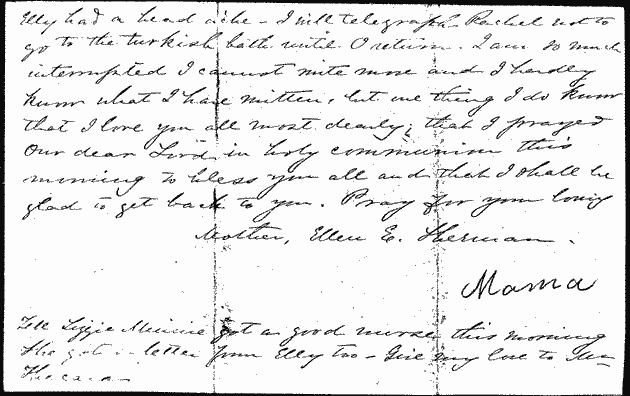 Elly had a head ache - I will telegraph Rachel not to
go to the turkish bath until I return. I am so much
interrupted I cannot write more and I hardly
know what I have written, but one thing I do know
that I love you all most dearly; that I prayed
Our dear Lord in holy communion this
morning to bless you all and that I shall be
glad to get back to you. Pray for your loving
Mother, Ellen E. Sherman.
Mama
Tell Lizzie Minnie got a good nurse this morning
She got a letter from Elly too - Give my love to